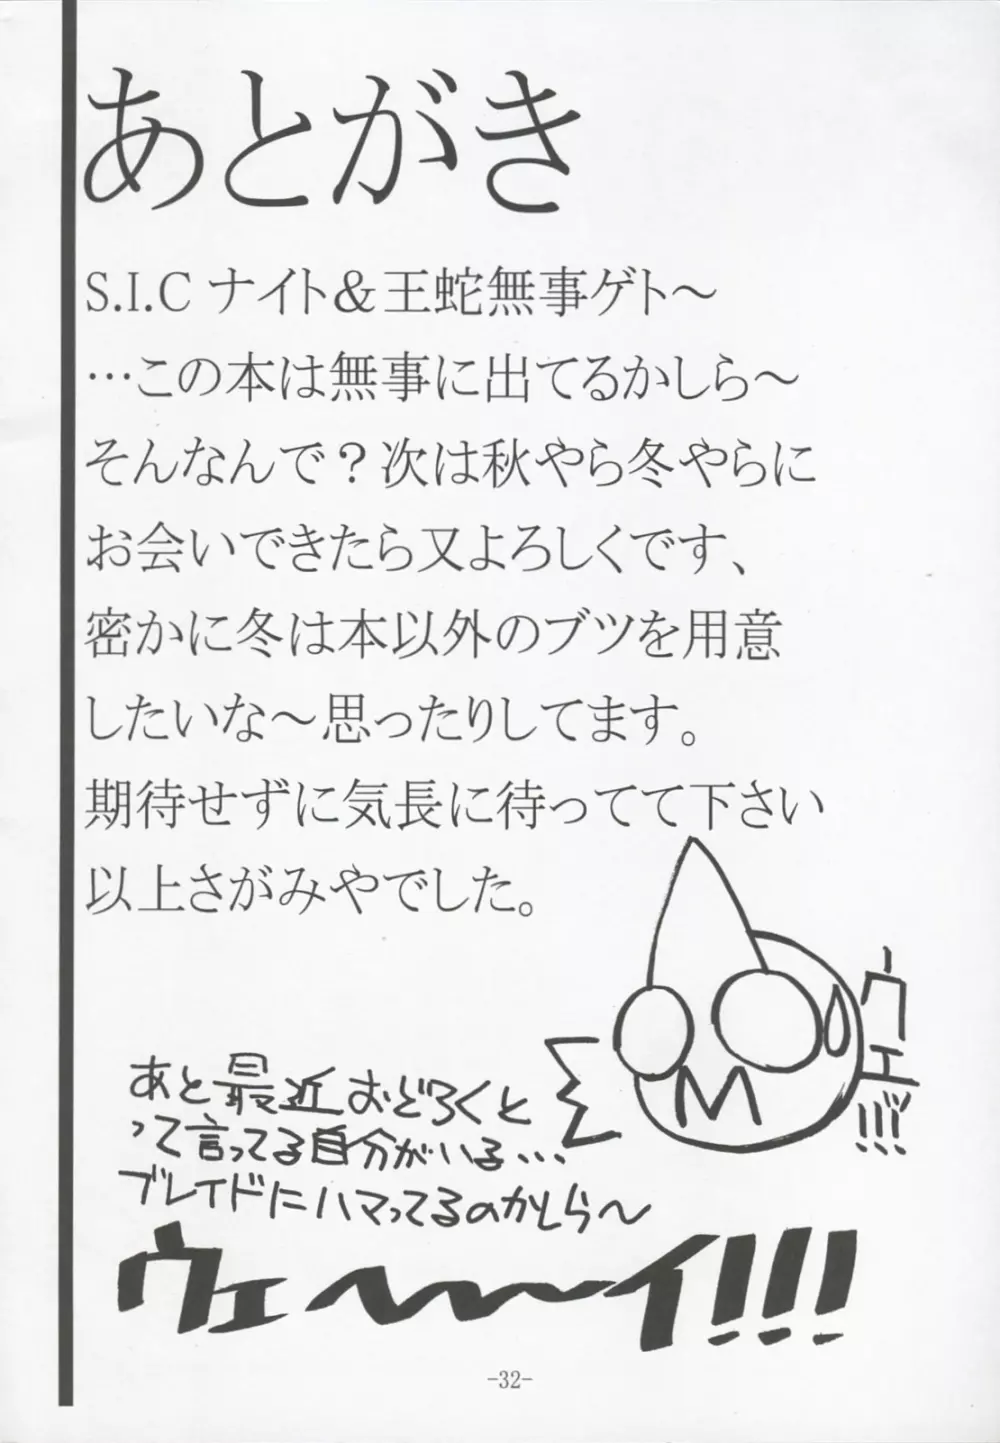 あとがき
S.I.C ナイト＆王蛇無事ゲト～
…この本は無事に出てるかしら～
そんなんで？次は秋やら冬やらに
お会いできたら又よろしくです、
密かに冬は本以外のブツを用意
したいな～思ったりしてます。
期待せずに気長に待ってて下さい
以上さがみやでした。
ウエ!!!
あと最近おどろくと
って言ってる自分がいる…
ブレイドにハマってるのかしら～
ウェ～～イ!!!
-32-